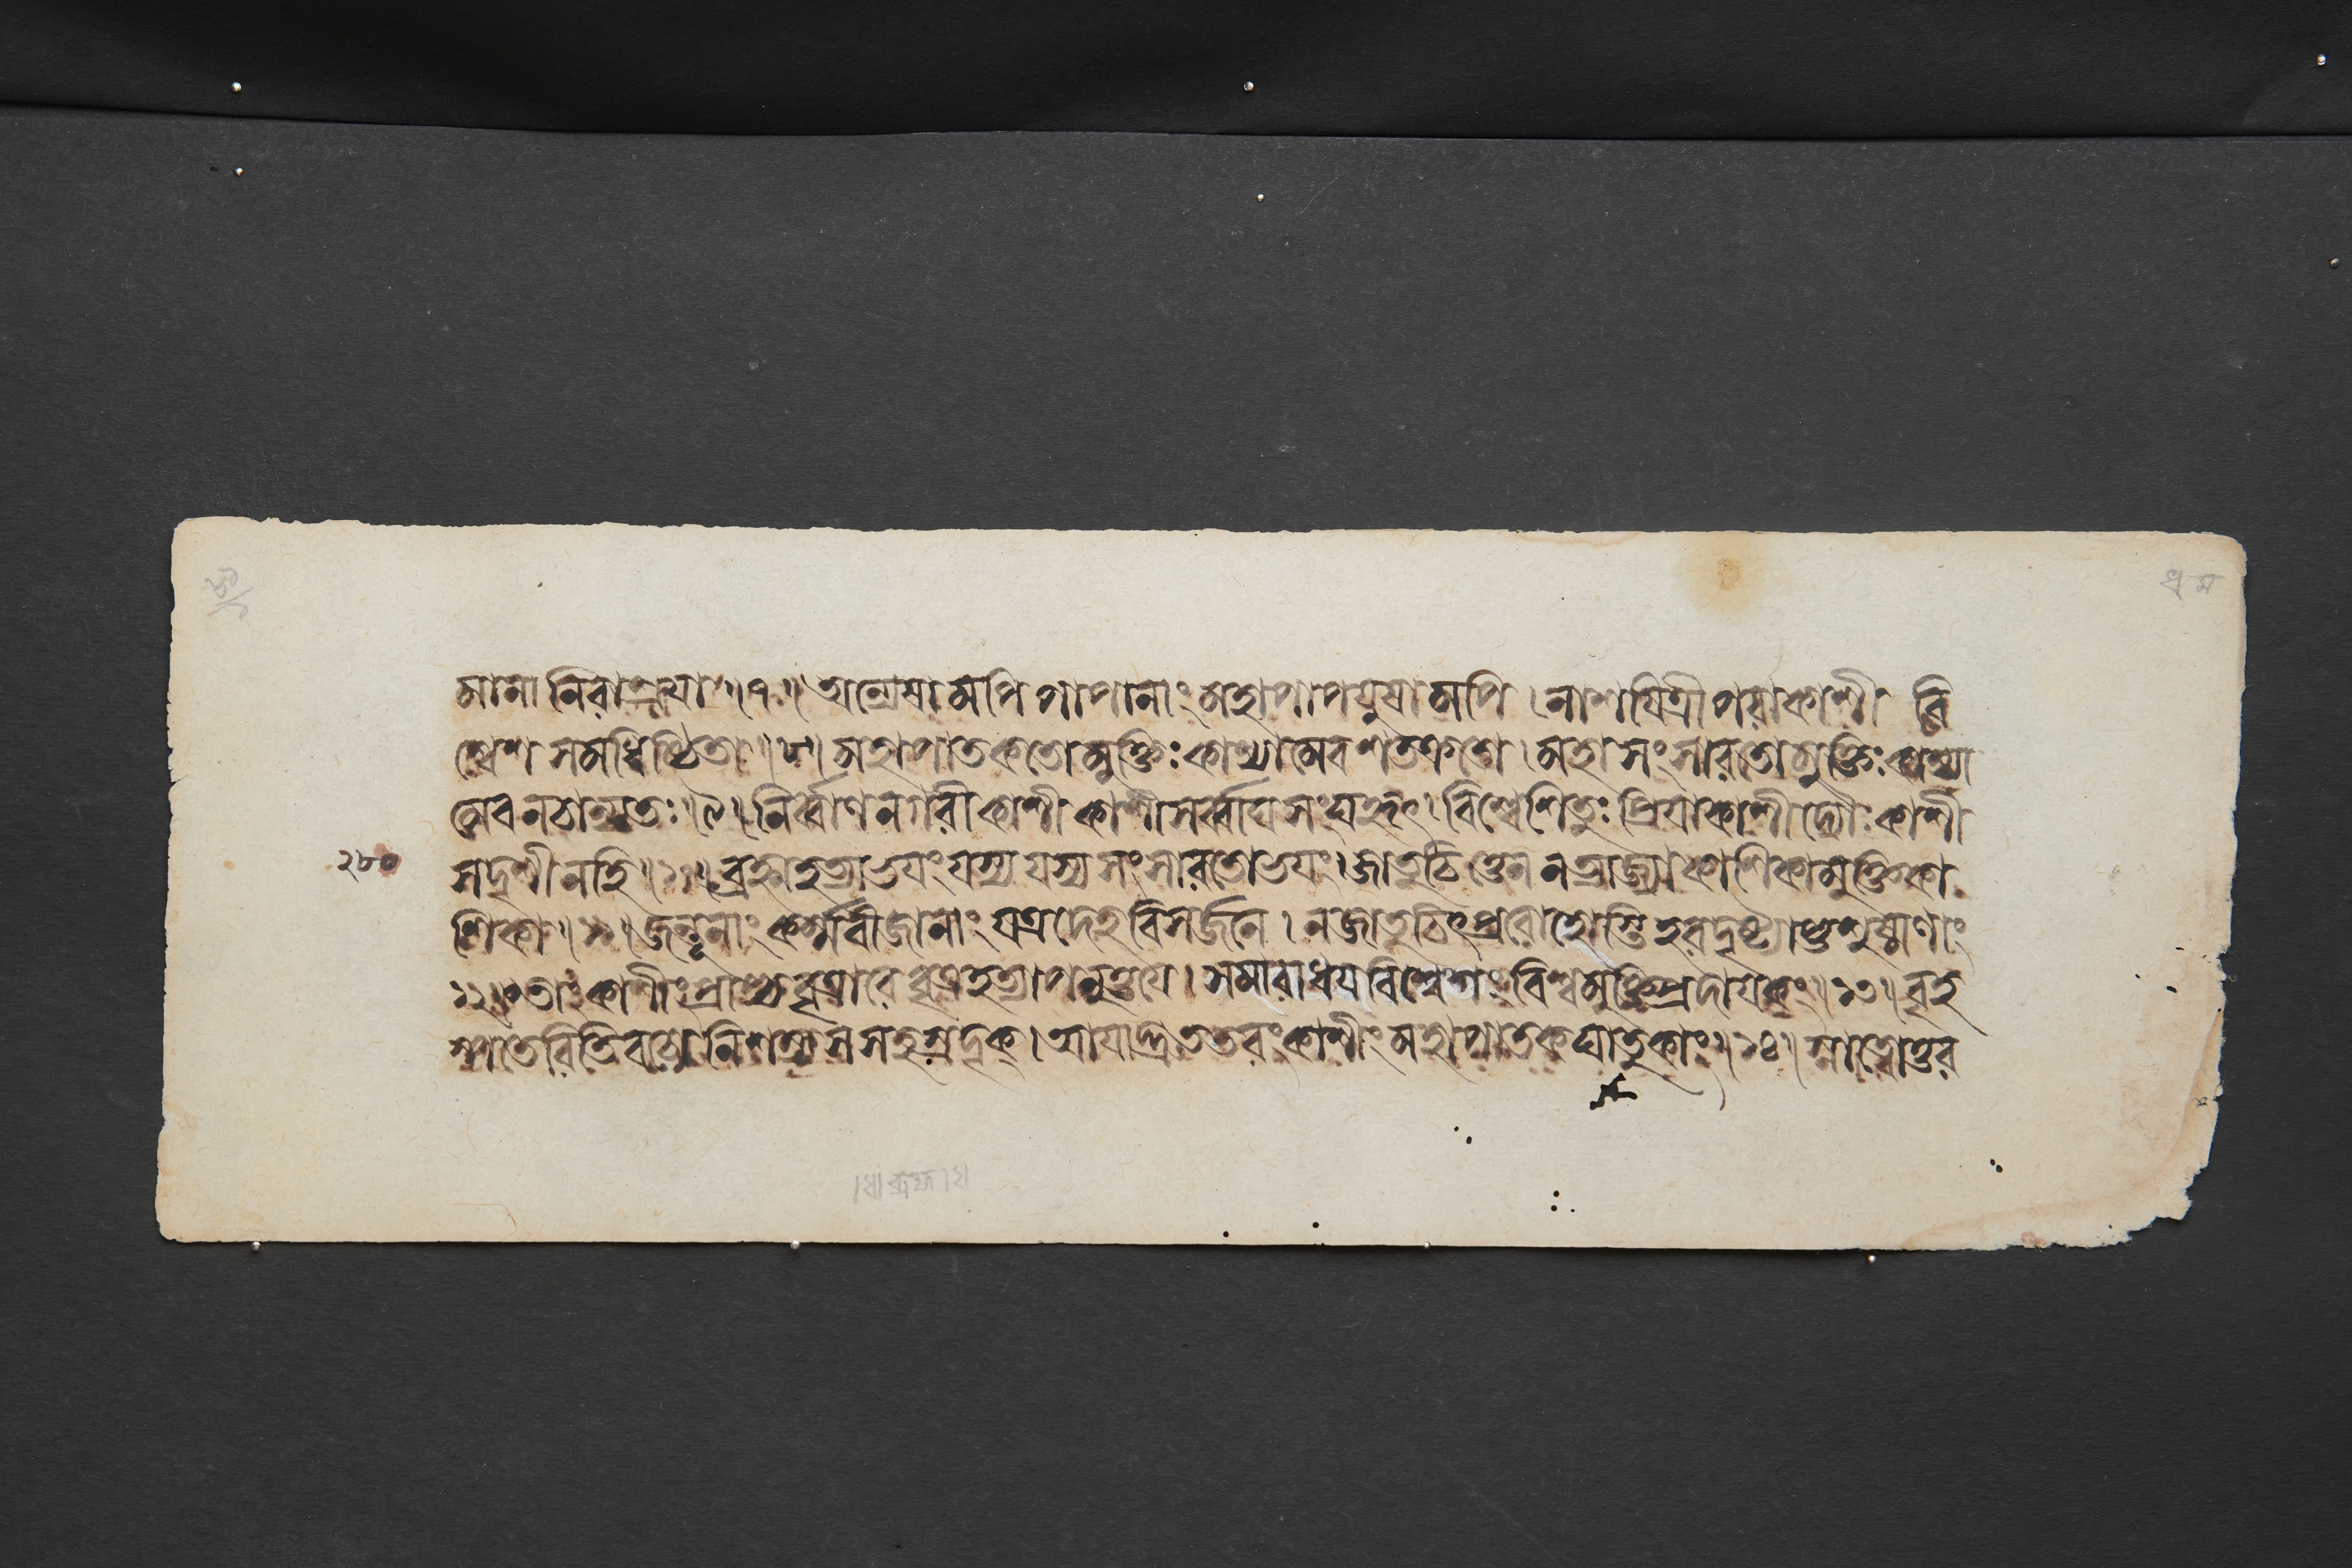 মানা নিরাশ্রযা ॥৭॥ অন্যেষামপি পাপানাং মহাপাপযুষামপি । নাশযিত্রী পরাকাশী বি
শ্বেশ সমধিষ্ঠিতা ॥৮॥ মহাপাতকতো মুক্তিঃ কাশ্যামেব শতক্রতো । মহাসংসারতো মুক্তিঃ কাশ্যা
মেব ন চান্যতঃ ॥৯॥ নির্ব্বাণনগরী কাশী কাশী সর্ব্বাঘসংঘহৃৎ । বিশ্বেশিতুঃ প্রিযা কাশী দ্যৌঃ কাশী
২৮০ সদৃশী নহি ॥১০॥ ব্রহ্মহত্যাভযং যস্য যস্য সংসারতো ভযং । জাতুচিত্তেন ন ত্যাজ্যা কাশিকা মুক্তিকা
শিকা ॥১১॥ জন্তূনাং কর্ম্মবীজানাং যত্র দেহবিসর্জনে । ন জাতুচিৎ প্ররোহোস্তি হরদৃষ্ট্যাশুশুষ্মাণাং
১২॥ তাং কাশীং প্রাপ্য বৃত্রারে বৃত্রহত্যাপনুত্তযে । সমারাধয বিশ্বেশং বিশ্বমুক্তিপ্রদাযকং ॥১৩॥ বৃহ
স্পতেরিতি বচো নিশম্য স সহস্রদৃক্ । আযাদ্দ্রুততরং কাশীং মহাপাতকঘাতুকাং ॥১৪॥ স্নাত্বোত্তর